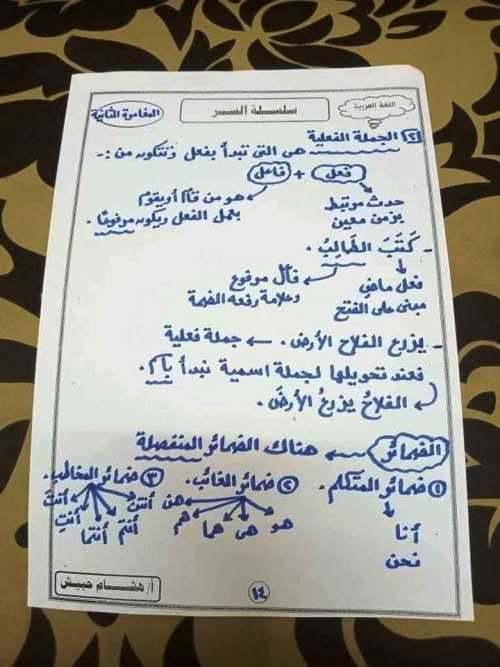 اللغة العربية
سلسلة السر
المغامرة الثانية
٢ الجملة الفعلية هى التى تبدأ بفعل وتتكون من :-
فعل + فاعل
حدث مرتبط
بزمن معين
هو من قام أو يقوم
بعمل الفعل ويكون مرفوعًا .
- كَتَبَ الطَالِبُ .
فعل ماضِ
مبنى على الفتح
فاعل مرفوع
وعلامة رفعه الضمة
- يزرع الفلاح الأرض . ← جملة فعلية
فعند تحويلها لجملة اسمية نبدأ باسم .
الفلاحُ يزرعُ الأرضَ .
الضمائر ← هناك الضمائر المنفصلة
١ ضمائر المتكلم .
٢ ضمائر الغائب .
٣ ضمائر المخاطب .
أنا
نحن
هو هى هما هم هن
أنتَ أنتِ أنتما أنتم أنتن
١٤
أ/ هشام حبيش